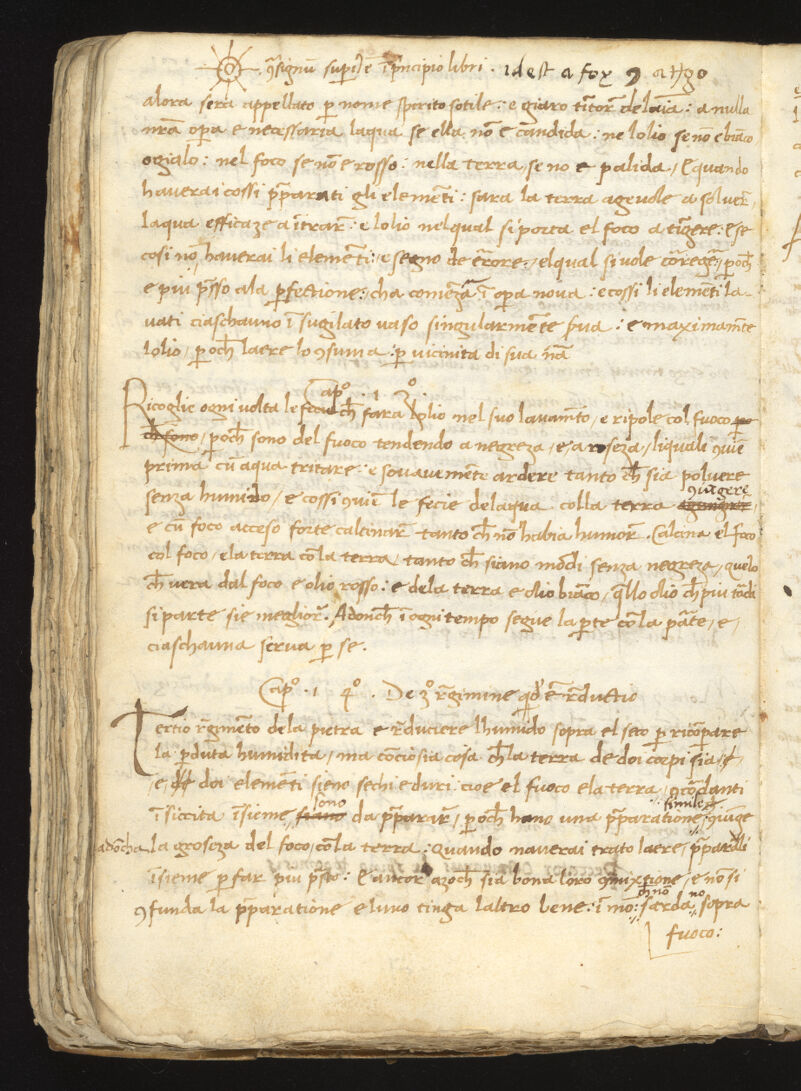 q̃signũ sup̃i9 ẽ ĩ p̃ncipio libri. idest a fox 9 a
alora sera appellato p̱ nome spirito sotile: e giaro tĩtor̃ delaiã: a nulla
nrã opa e necessaria laqua se ella nõ e candida: ne lolio se nõ e biãco
ogialo: nel foco se nõ e rosso: nella terra se no e palida / Equando
haverai cossi p̱parati gli elemẽti: sara la terra agevole a solver̃,
laqua efficaze a ĩtrar̃: e lolio nelqual si porta el foco a tĩgere: Ese
cosi nõ haverai li elemẽti: e segno de errore: elqual si vole cõregẽ, p̱och̃
e piu p̃sso ala p̱fectione: cha comẽzã ĩ opa nova: e cossi li elemẽti la-
vati ciaschauno ĩ sugilato vaso singularmẽte srva: e maximamẽte
lolio, p̱och̃ laere lo 9suma: p̱ vicinita di sua nãa
Cap̃o. 1 3o.
Ricoglie ogni volta le fecie ch̃ fara lolio nel suo lavamẽto, e ripole col fuoco
p̱och̃ sono del fuoco tendendo a negreza, e, a roseza, liquali 9viẽ
prima cũ aqua tritare: e soavamẽte ardere tanto ch̃ sia polvere
senza humido, e cossi 9viẽ le fecie delaqua colla terra 9iũgere
e cũ foco acceso forte calcinar̃ tanto ch̃ nõ habia humor̃. Calcina el foco
col foco, ela terra cõla terra, tanto ch̃ siano mõdi senza negreza, quelo
ch̃ vera dal foco e olio rosso: e dela terra e olio biãco, q̃llo olio ch̃ piu tãdi
si parte sie meglior̃. Adonch̃ ĩ ogni tempo segue la p̱te cõla pãte, e,
ciaschauna serva p̱ se.
Cap̃o. 1 4o. De 3o r̃gimine qd̃ ẽ r̃ductio
Tertio r̃gimẽto dela pietra e r̃duciere lhumido sopra el seco p̱ ricõpare
la p̱duta humidita, ma cõciosia cosa ch̃ la terra de doi corpi sia,
e, doi elemẽti sieno sechi e duri cioe el fuoco ela terra, 9cordanti
ĩ siccita ĩsieme, sono da p̱parar̃, p̱och̃ hano una p̱paratione, simile 9iũge
adõcha la groseza del foco, cõla terra: Quando haverai trato laere, p̱parãli
ĩsieme p̱ far piu p̃sto: E ancor azoch̃ sia bona loro 9mixtione, e nõ si
9funda la p̱paratione e luno tinga laltro bene: ĩ mõ: ch̃ nõ sarda no sopra
fuoco: